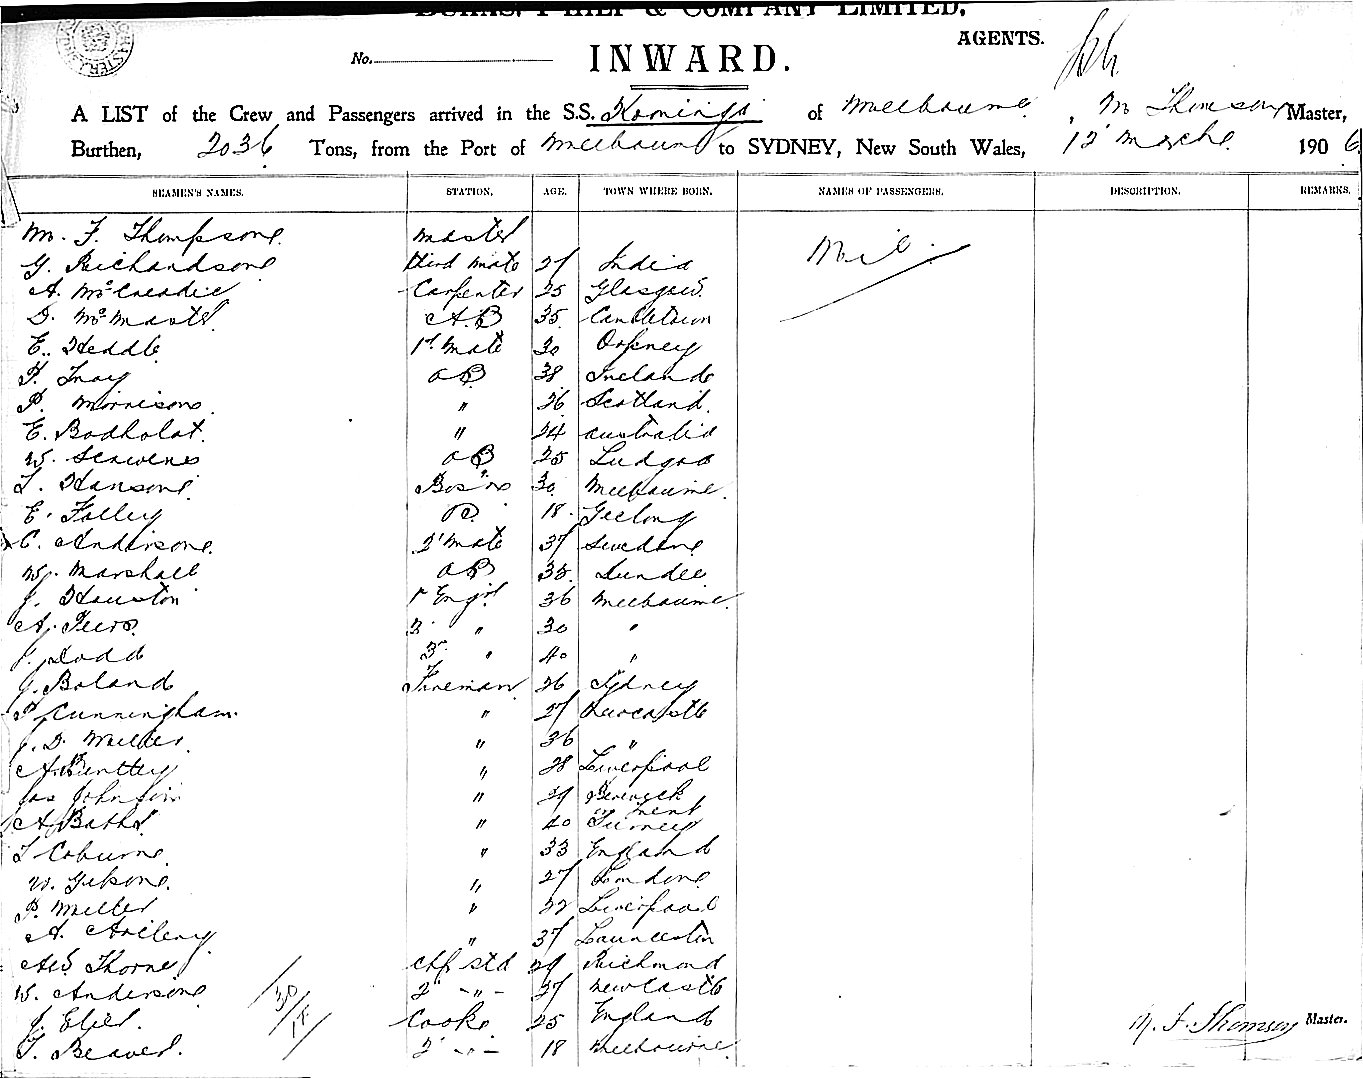 BURNS, PHILP & COMPANY LIMITED,
AGENTS.
No.
INWARD.
A LIST of the Crew and Passengers arrived in the S.S. of Melbourne, M Thomson Master,
Burthen, 2036 Tons, from the Port of Melbourne to SYDNEY, New South Wales, 12' March 1906
SEAMEN'S NAMES. STATION. AGE. TOWN WHERE BORN. NAMES OF PASSENGERS. DESCRIPTION. REMARKS.
M. F. Thompson Master Nil.
G. Richardson third Mate 27 India
A. McCreadie Carpenter 25 Glasgow
D. McMaster A.B 35 Cambletown
E. Heddle 1st Mate 30 Orkney
P. AB 38 Ireland
P. Morrison " 26 Scotland
E. Bodholat " 24 Australia
W. AB 25
L. Hansone Bos'n 30 Melbourne
E. Folley 18 Geelong
C. Anderson 2' Mate 37 Sweden
W. Marshall AB 35 Dundee
J. Houston 1st Engr 36 Melbourne
A. Peers 2 " 30 "
J. Dodd 3rd " 40 "
J. Boland Fireman 26 Sydney
P. Cunningham " 27 Newcastle
J. D. Miller " 36 "
A. Bentley " 28 Liverpool
Jas Johnson " 29
A. " 40
T Coburne " 33 England
W. Gibson " 27 London
P. Miller " 22 Liverpool
A. " 37 Launceston
Thorne Chf std 29 Richmond
W. Anderson 2" -"- 27 Newcastle
J. Cooke 25 England
30/18/
M. F. Thomson Master.
T. Beaver 2' -"- 18 Melbourne